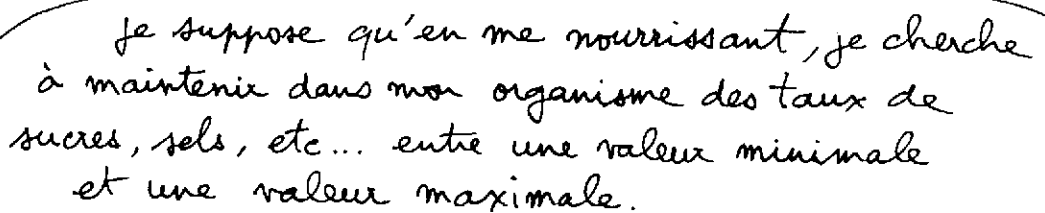 Je suppose qu'en me nourrissant, je cherche
à maintenir dans mon organisme des taux de
sucres, sels, etc... entre une valeur minimale
et une valeur maximale.